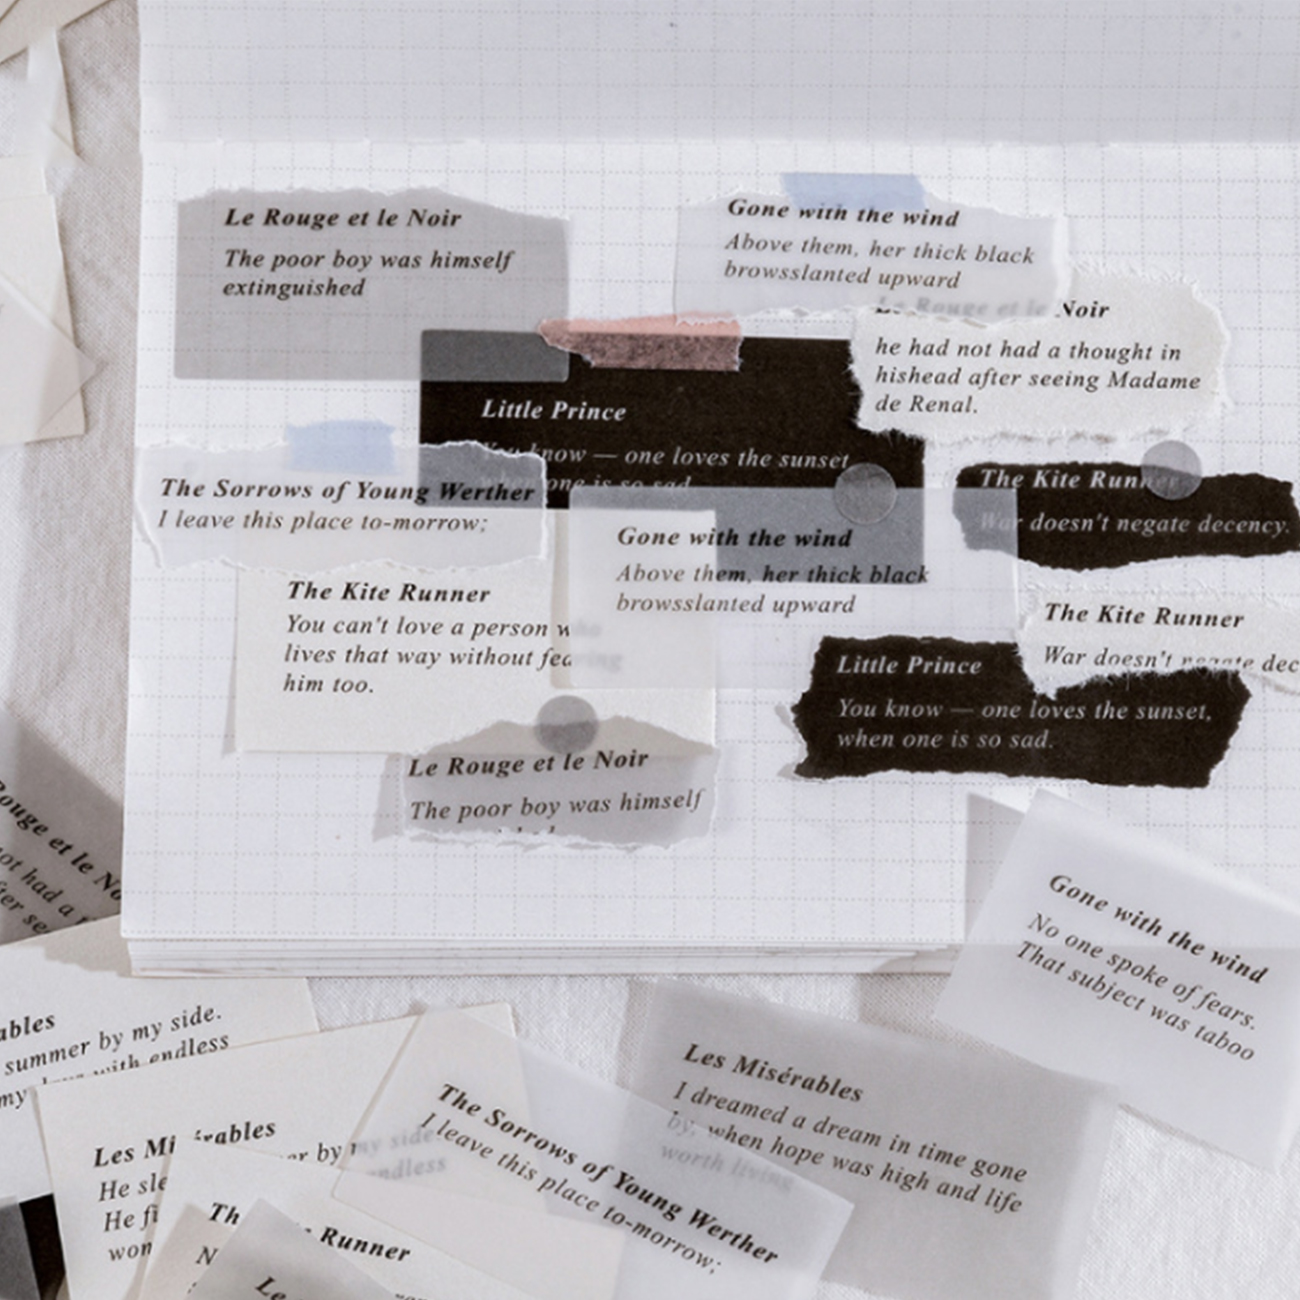 Le Rouge et le Noir
The poor boy was himself
extinguished
Gone with the wind
Above them, her thick black
browsslanted upward
Le Rouge et le Noir
he had not had a thought in
hishead after seeing Madame
de Renal.
Little Prince
You know — one loves the sunset
when one is so sad
The Sorrows of Young Werther
I leave this place to-morrow;
The Kite Runner
War doesn't negate decency.
Gone with the wind
Above them, her thick black
browsslanted upward
The Kite Runner
You can't love a person who
lives that way without fearing
him too.
The Kite Runner
War doesn't negate dec
Little Prince
You know — one loves the sunset,
when one is so sad.
Le Rouge et le Noir
The poor boy was himself
Rouge et le No
ot had a t
ter se
Gone with the wind
No one spoke of fears.
That subject was taboo
ables
summer by my side.
my love with endless
my
Les Misérables
I dreamed a dream in time gone
by, when hope was high and life
worth living
Les Mi rables
He sle er by my side
He fi endless
won
The Sorrows of Young Werther
I leave this place to-morrow;
Th Runner
N
Le